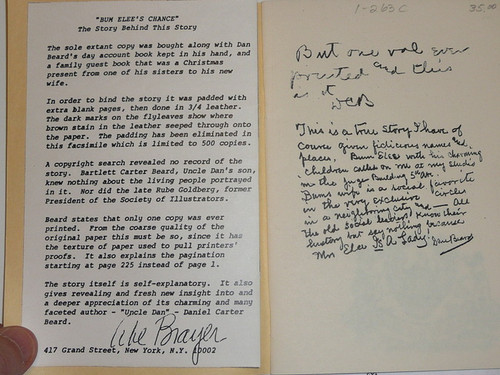 "BUM ELEE'S CHANCE"
The Story Behind This Story
The sole extant copy was bought along with Dan
Beard's day account book kept in his hand, and
a family guest book that was a Christmas
present from one of his sisters to his new
wife.
In order to bind the story it was padded with
extra blank pages, then done in 3/4 leather.
The dark marks on the flyleaves show where
brown stain in the leather seeped through onto
the paper. The padding has been eliminated in
this facsimile which is limited to 500 copies.
A copyright search revealed no record of the
story. Bartlett Carter Beard, Uncle Dan's son,
knew nothing about the living people portrayed
in it. Nor did the late Rube Goldberg, former
President of the Society of Illustrators.
Beard states that only one copy was ever
printed. From the coarse quality of the
original paper this must be so, since it has
the texture of paper used to pull printers'
proofs. It also explains the pagination
starting at page 225 instead of page 1.
The story itself is self-explanatory. It also
gives revealing and fresh new insight into and
a deeper appreciation of its charming and many
faceted author - "Uncle Dan" - Daniel Carter
Beard.
Abe Brayer
417 Grand Street, New York, N.Y. 10002
1-263C 35.00
But one vol ever
printed and this
is it
DCB
This is a true story I have of
course given ficticious names &
places. Bum Elee with his charming
children calles on me at my studio
in the Judge Building 5th Av.
Bums wife is a social favorite
in the very exclusive circles
in a neighboring city and — All
the old social leaders know their
history but say nothing because
Mrs Elee Is A Lady.
Dan Beard